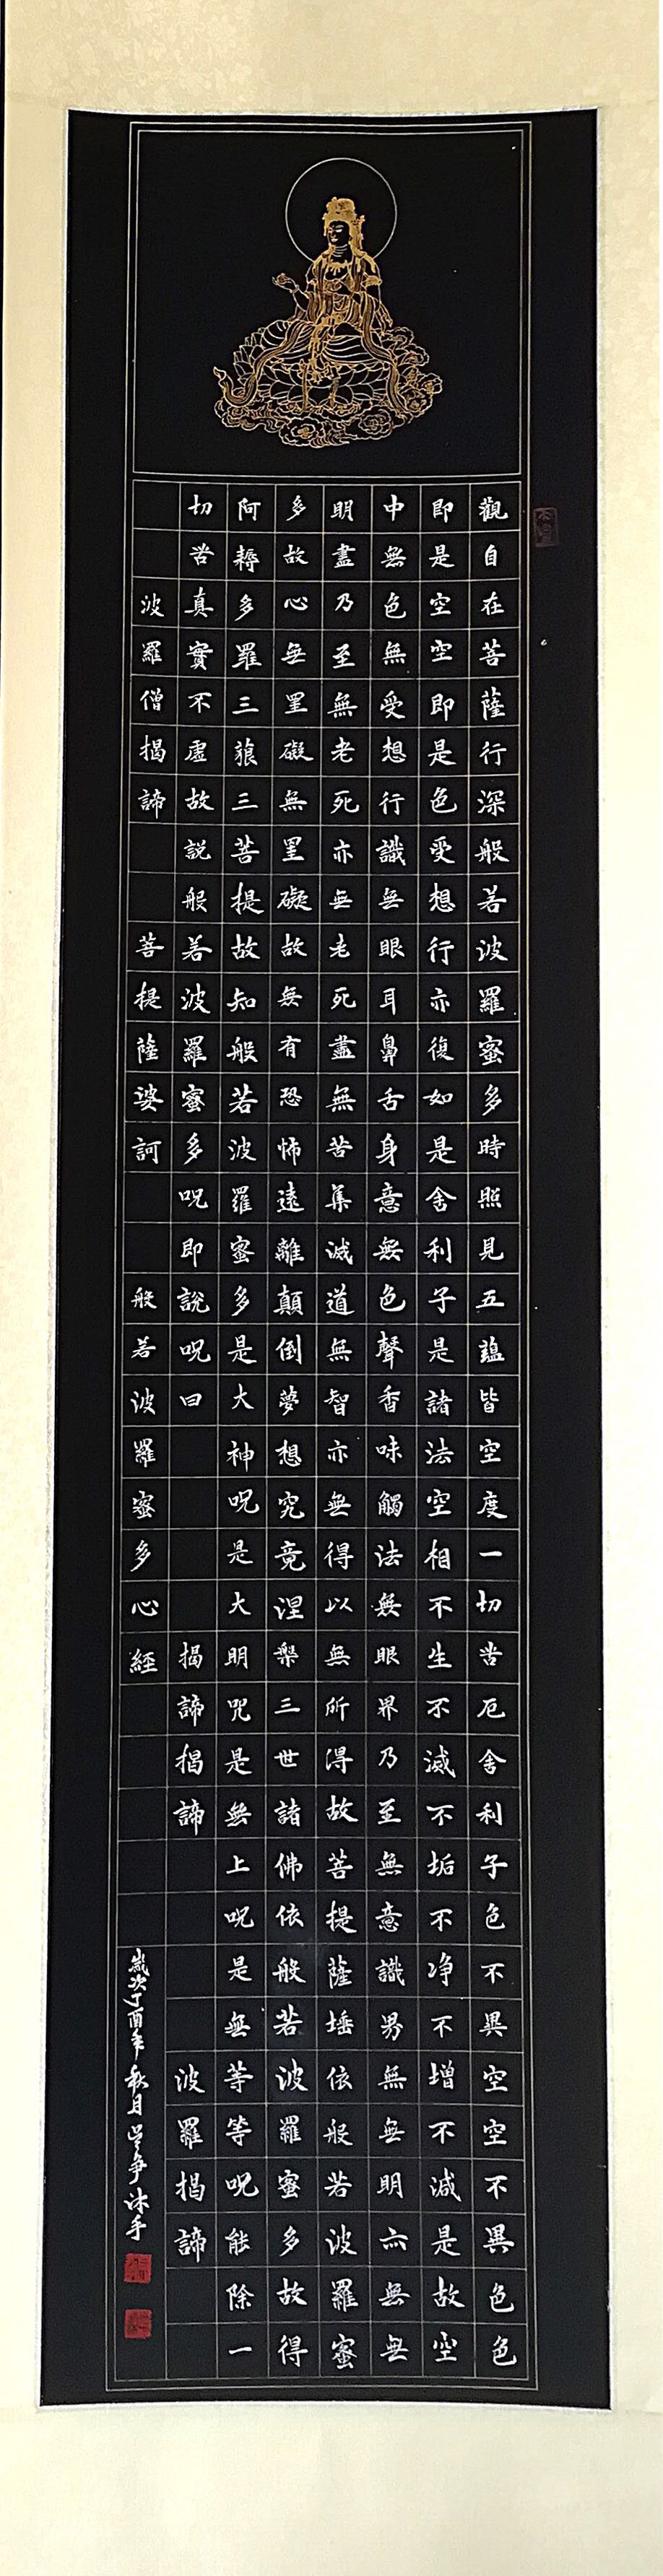 觀自在菩薩行深般若波羅蜜多時照見五蘊皆空度一切苦厄舍利子色不異空空不異色色
即是空空即是色受想行亦復如是舍利子是諸法空相不生不滅不垢不净不增不減是故空
中無色無受想行識無眼耳鼻舌身意無色聲香味觸法無眼界乃至無意識界無無明亦無無
明盡乃至無老死亦無老死盡無苦集滅道無智亦無得以無所得故菩提薩埵依般若波羅蜜
多故心無罣礙無罣礙故無有恐怖遠離顛倒夢想究竟涅槃三世諸佛依般若波羅蜜多故得
阿耨多羅三藐三菩提故知般若波羅蜜多是大神呪是大明咒是無上呪是無等等呪能除一
切苦真實不虛故説般若波羅蜜多呪即説呪曰 揭諦揭諦 波羅揭諦
波羅僧揭諦 菩提薩婆訶 般若波羅蜜多心經
歲次丁酉年秋月 沐手